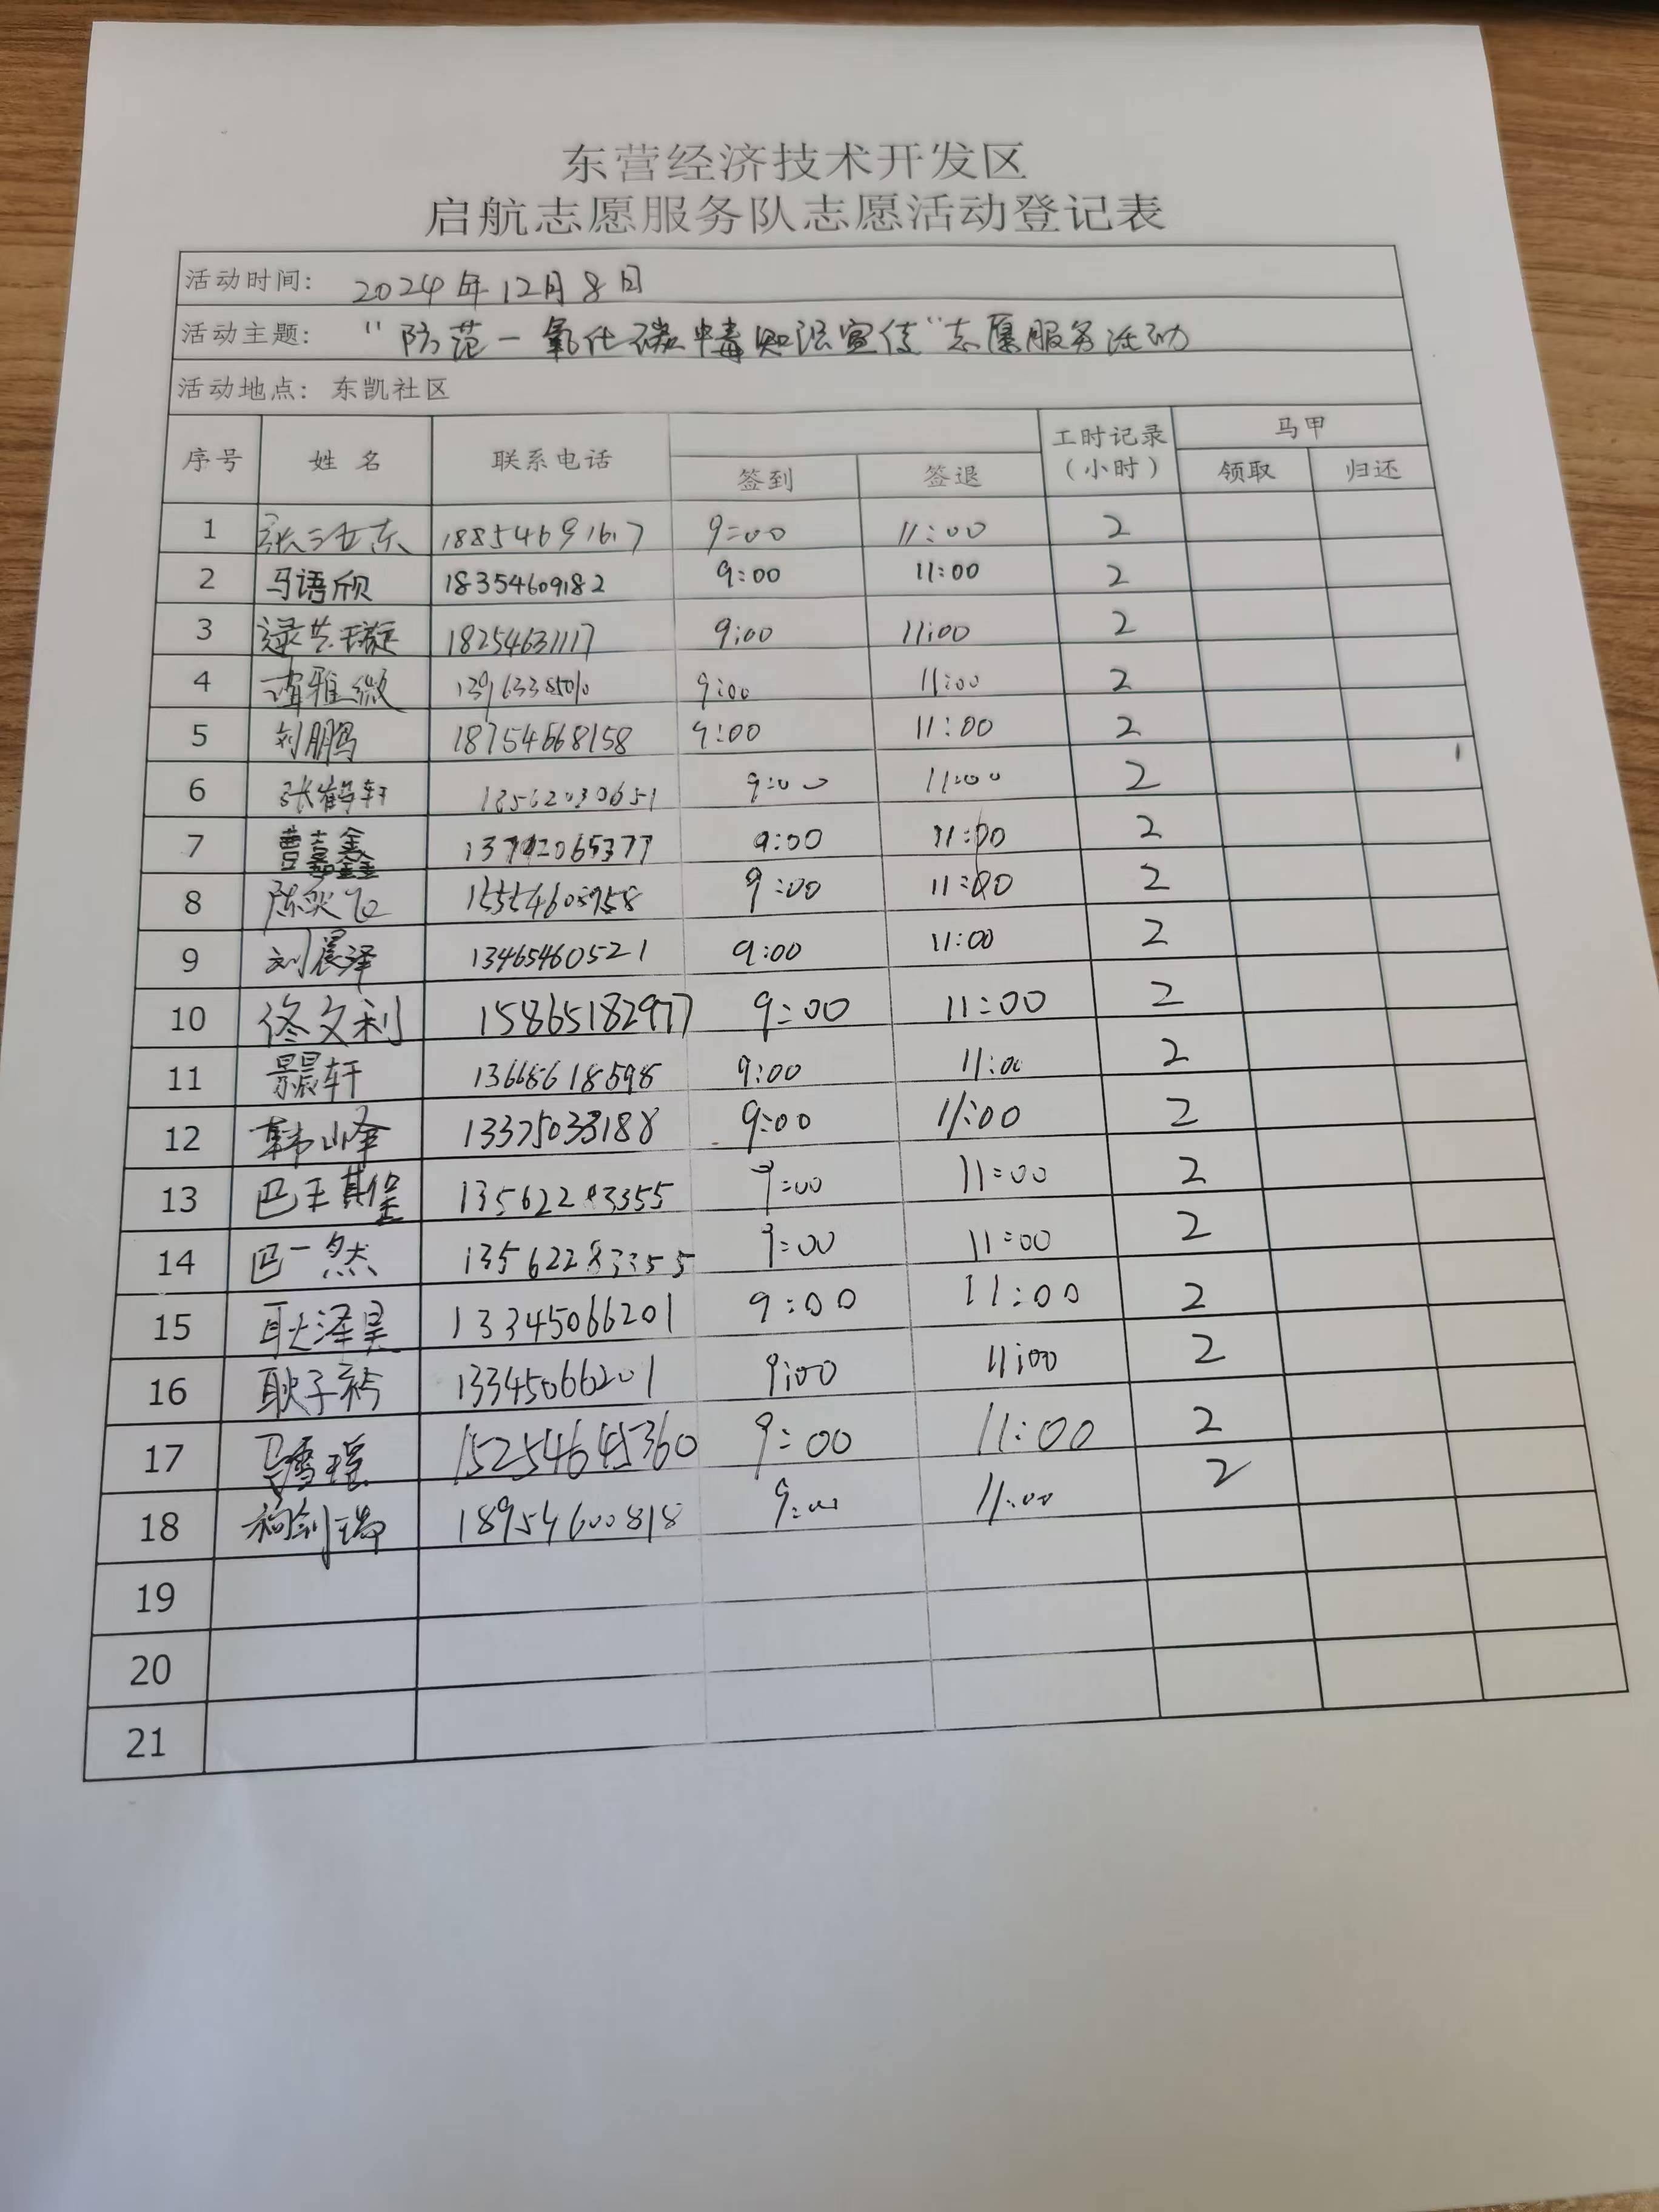 东营经济技术开发区
启航志愿服务队志愿活动登记表
活动时间: 2024年12月8日
活动主题: "防范一氧化碳中毒知识宣传"志愿服务活动
活动地点: 东凯社区
序号 姓名 联系电话 签到 签退 工时记录(小时) 马甲 领取 归还
1 18854691617 9:00 11:00 2
2 马语欣 18354609182 9:00 11:00 2
3 18254631117 9:00 11:00 2
4 9:00 11:00 2
5 刘鹏 18754668158 9:00 11:00 2
6 张鹤轩 9:00 11:00 2
7 曹嘉鑫 9:00 11:00 2
8 陈 飞 9:00 11:00 2
9 刘晨泽 13465460521 9:00 11:00 2
10 佟文利 15865182977 9:00 11:00 2
11 景晨轩 9:00 11:00 2
12 韩山峰 9:00 11:00 2
13 巴王其 9:00 11:00 2
14 巴一然 13562283355 9:00 11:00 2
15 耿泽昊 13345066201 9:00 11:00 2
16 耿子衿 13345066201 9:00 11:00 2
17 15254645360 9:00 11:00 2
18 18954600818 9:00 11:00 2
19
20
21